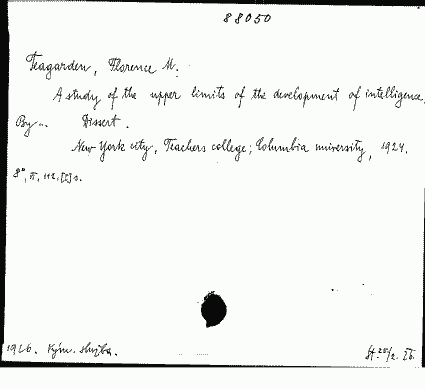 88050
Teagarden, Florence M.
A study of the upper limits of the development of intelligence.
By... Dissert.
New York city, Teachers college; Columbia university, 1924.
8°, 112, s.
1926. služba.
St.